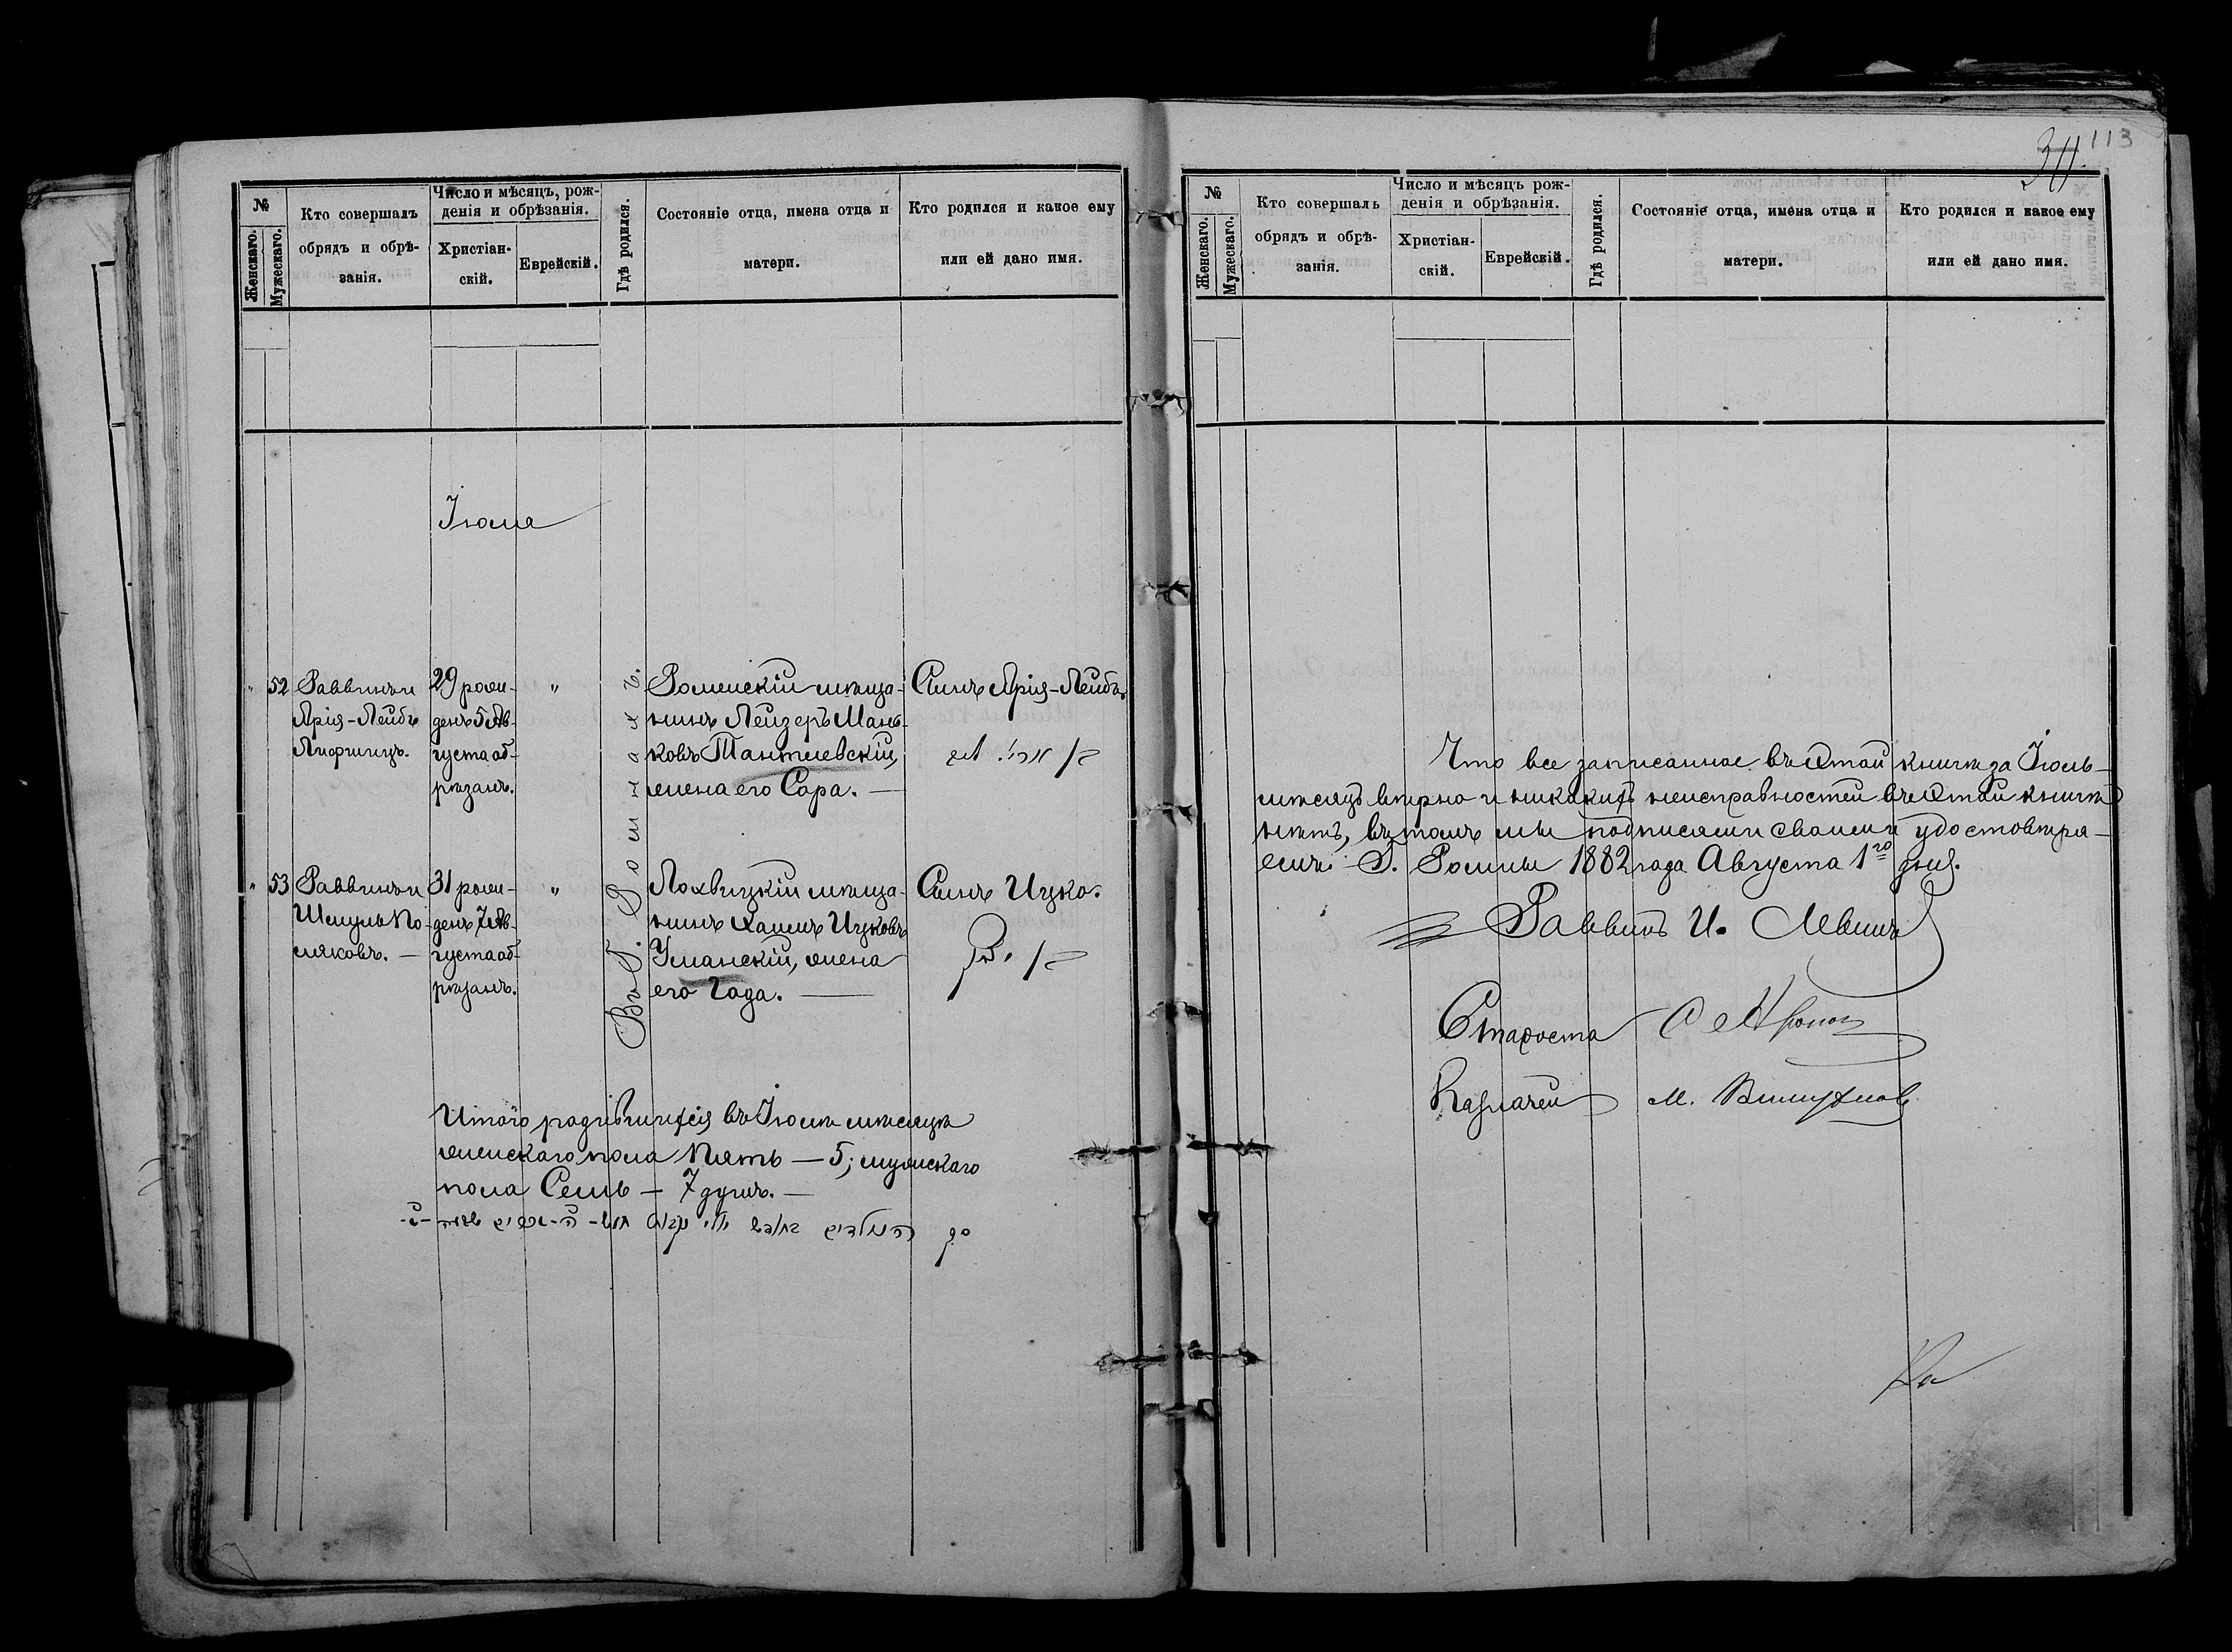 №
Женскаго.
Мужескаго.
Кто совершалъ
обрядъ и обрѣ-
занія.
Число и мѣсяцъ, рож-
денія и обрѣзанія.
Христіан-
скій.
Еврейскій.
Гдѣ родился.
Состояніе отца, имена отца и
матери.
Кто родился и какое ему
или ей дано имя.
Іюля
Въ Г. Ромнахъ.
" 52
Раввинъ и
Арія-Лейбъ
Лифшицъ.
29 рож-
денъ 5 Ав-
густа об-
рѣзанъ.
"
Роменскій мѣща-
нинъ Лейзеръ Мань-
ковъ Тантлевскій,
жена его Сара. —
Сынъ Арія-Лейбъ.
" 53
Раввинъ и
Шмуль По-
ляковъ. —
31 рож-
денъ 7 Ав-
густа об-
рѣзанъ.
"
Лохвицкій мѣща-
нинъ Хаимъ Ицковъ
Уманскій, жена
его Года. —
Сынъ Ицко.
Итого родившихся въ Іюлѣ мѣсяцѣ
женскаго пола Пять — 5; мужскаго
пола Семь — 7 душъ. —
113
34.
№
Женскаго.
Мужескаго.
Кто совершалъ
обрядъ и обрѣ-
занія.
Число и мѣсяцъ рож-
денія и обрѣзанія.
Христіан-
скій.
Еврейскій.
Гдѣ родился.
Состояніе отца, имена отца и
матери.
Кто родился и какое ему
или ей дано имя.
Что все записанное въ этой книгѣ за Іюль
мѣсяцъ вѣрно и никакихъ неисправностей въ этой книгѣ
нѣтъ, въ томъ мы подписями своими удостовѣря-
емъ. Г. Ромны 1882 года Августа 1го дня.
Раввинъ И. Левинъ
Староста С
Казначей М.